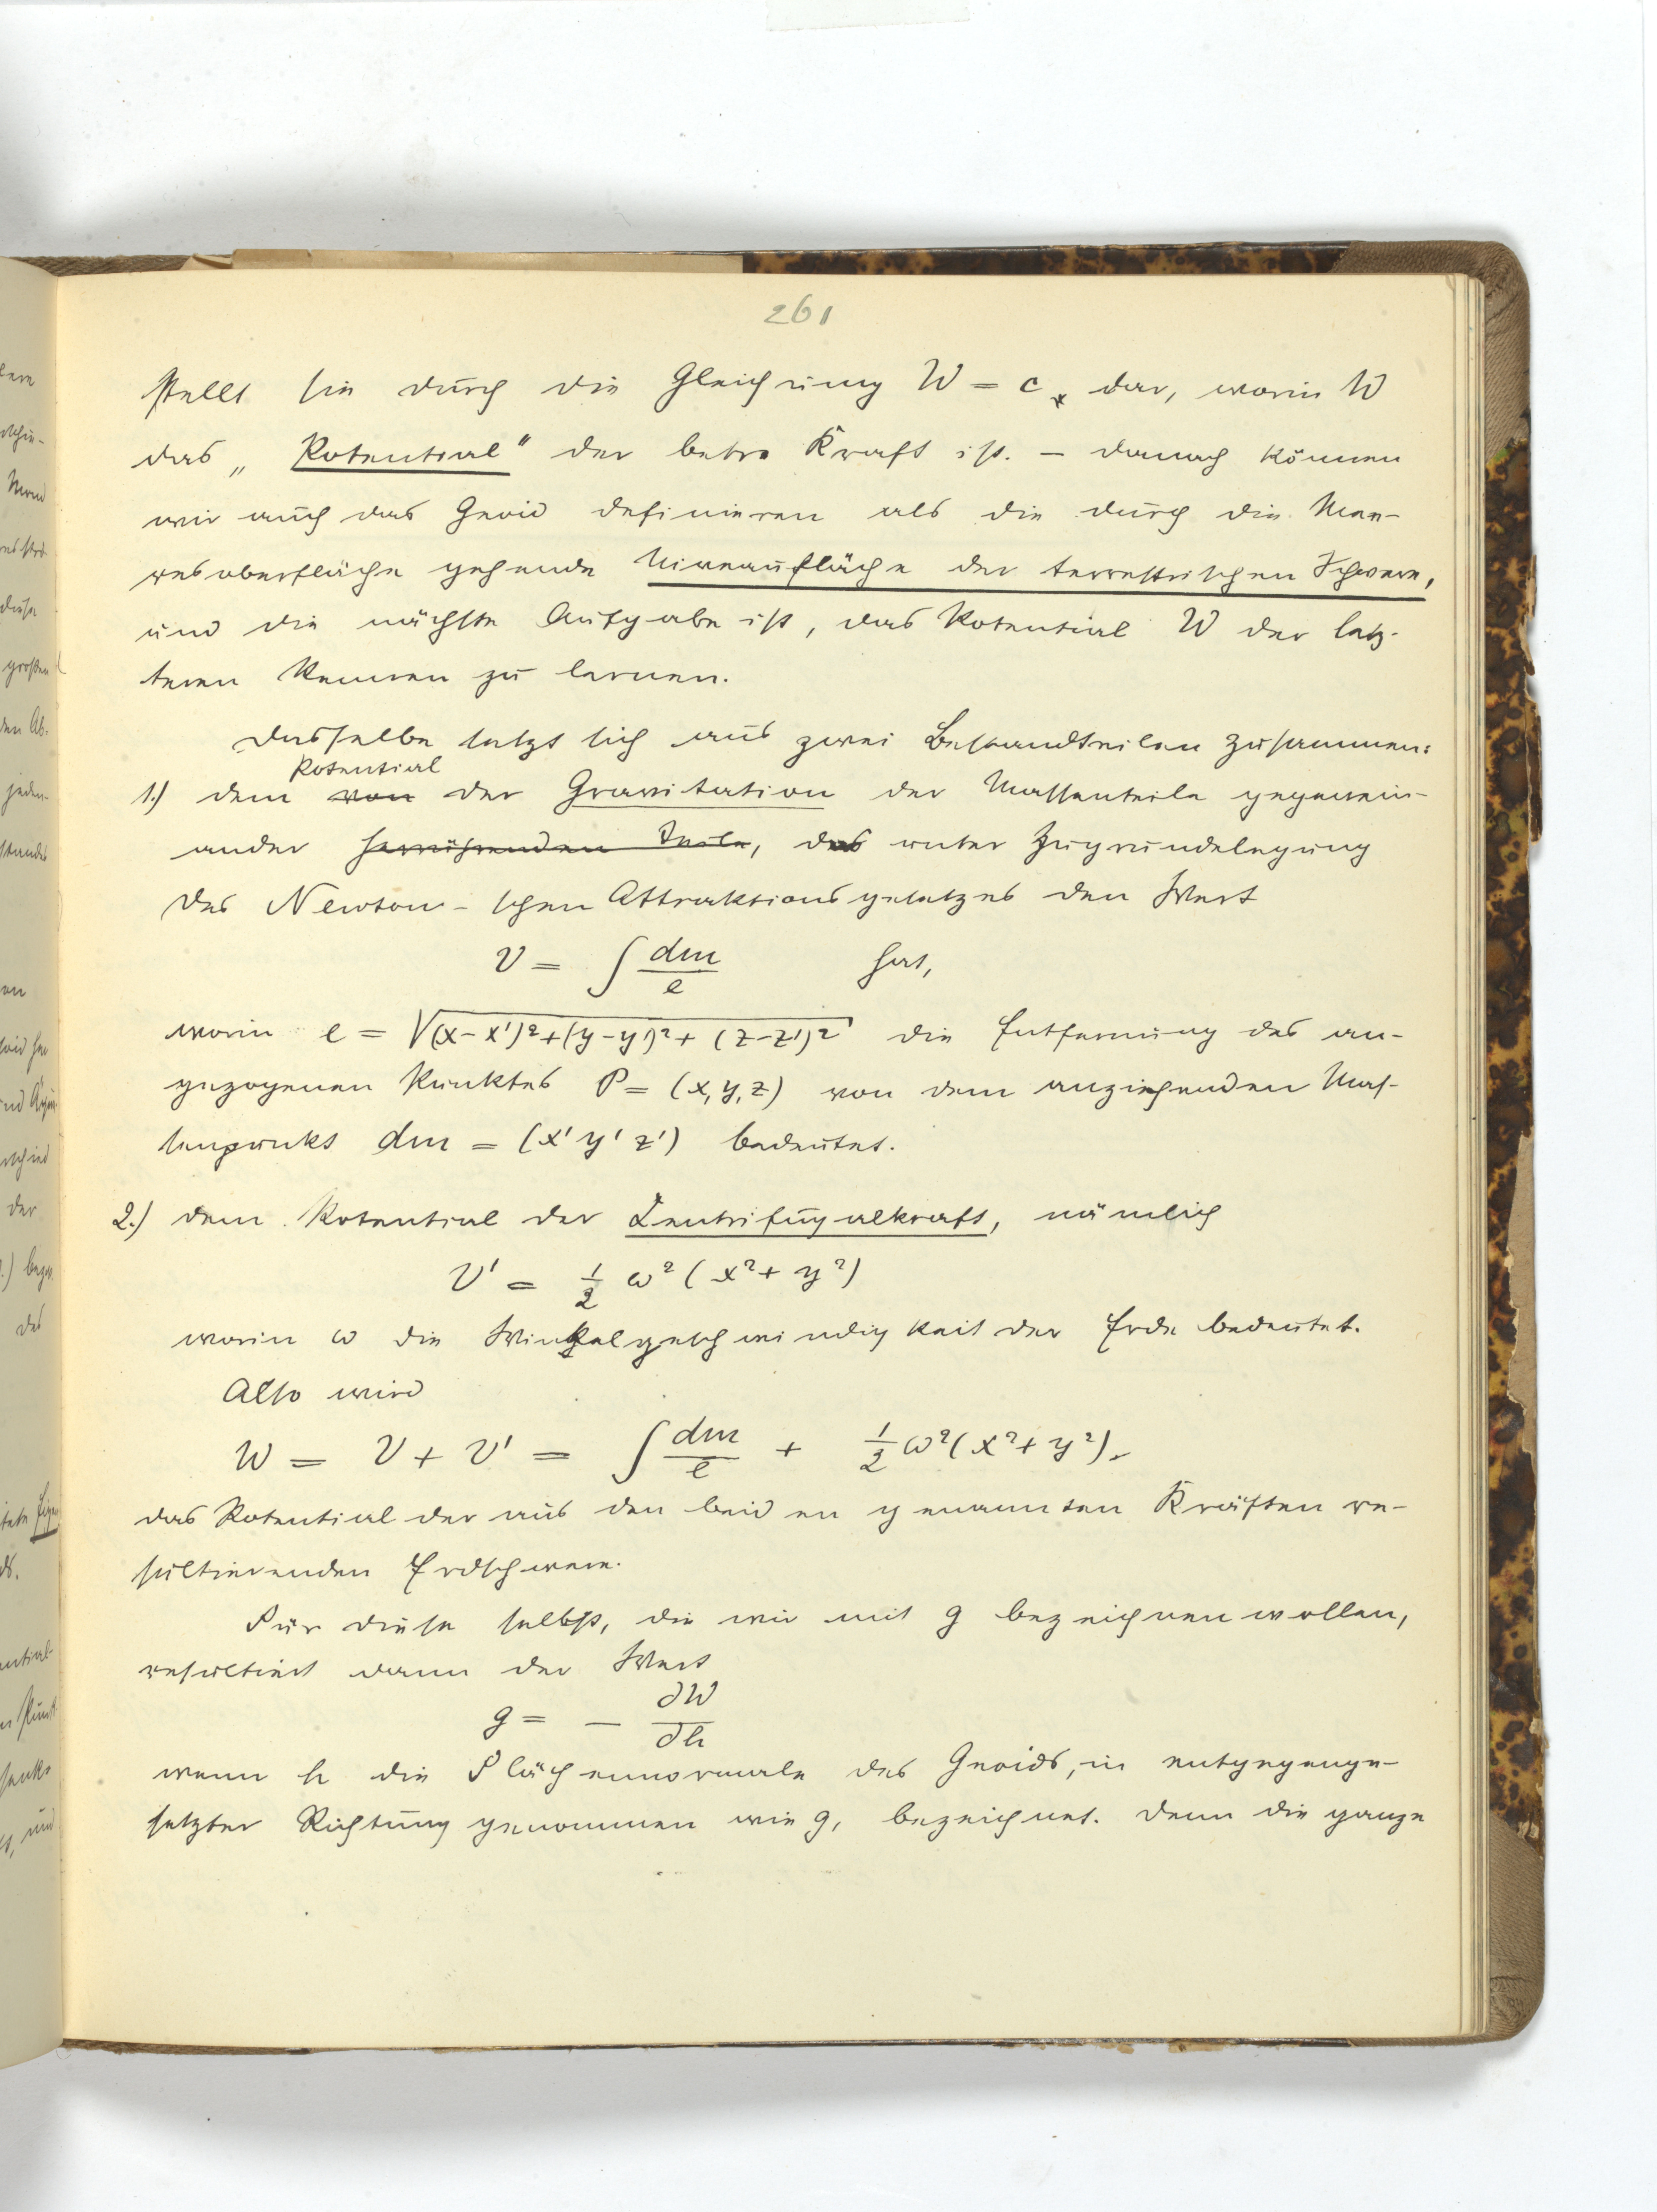 261
stellt sie durch die Gleichung W = c dar, worin W
das „Potential" der betr. Kraft ist. – Danach können
wir auch das Geoid definieren als die durch die Mee-
resoberfläche gehende Niveaufläche der terrestrischen Schwere,
und die nächste Aufgabe ist, das Potential W der letz-
teren kennen zu lernen.
Dasselbe setzt sich aus zwei Bestandteilen zusammen:
Potential
1.) dem von der Gravitation der Massenteile gegenein-
ander herrührenden Teile, das unter Zugrundelegung
des Newton-schen Attraktionsgesetzes den Wert
V = ∫ dm/e hat,
worin e = √(x-x')²+(y-y')²+(z-z')² die Entfernung des an-
gezogenen Punktes P = (x,y,z) von dem anziehenden Mas-
senpunkt dm = (x' y' z') bedeutet.
2.) dem Potential der Zentrifugalkraft, nämlich
V' = 1/2 ω² (x²+y²)
worin ω die Winkelgeschwindigkeit der Erde bedeutet.
Also wird
W = V + V' = ∫ dm/e + 1/2 ω²(x²+y²),
das Potential der aus den beiden genannten Kräften re-
sultierenden Erdschwere.
Für diese selbst, die wir mit g bezeichnen wollen,
resultiert dann der Wert
g = - ∂W/∂h
wenn h die Flächennormale des Geoids, in entgegenge-
setzter Richtung genommen wie g, bezeichnet. Denn die ganze